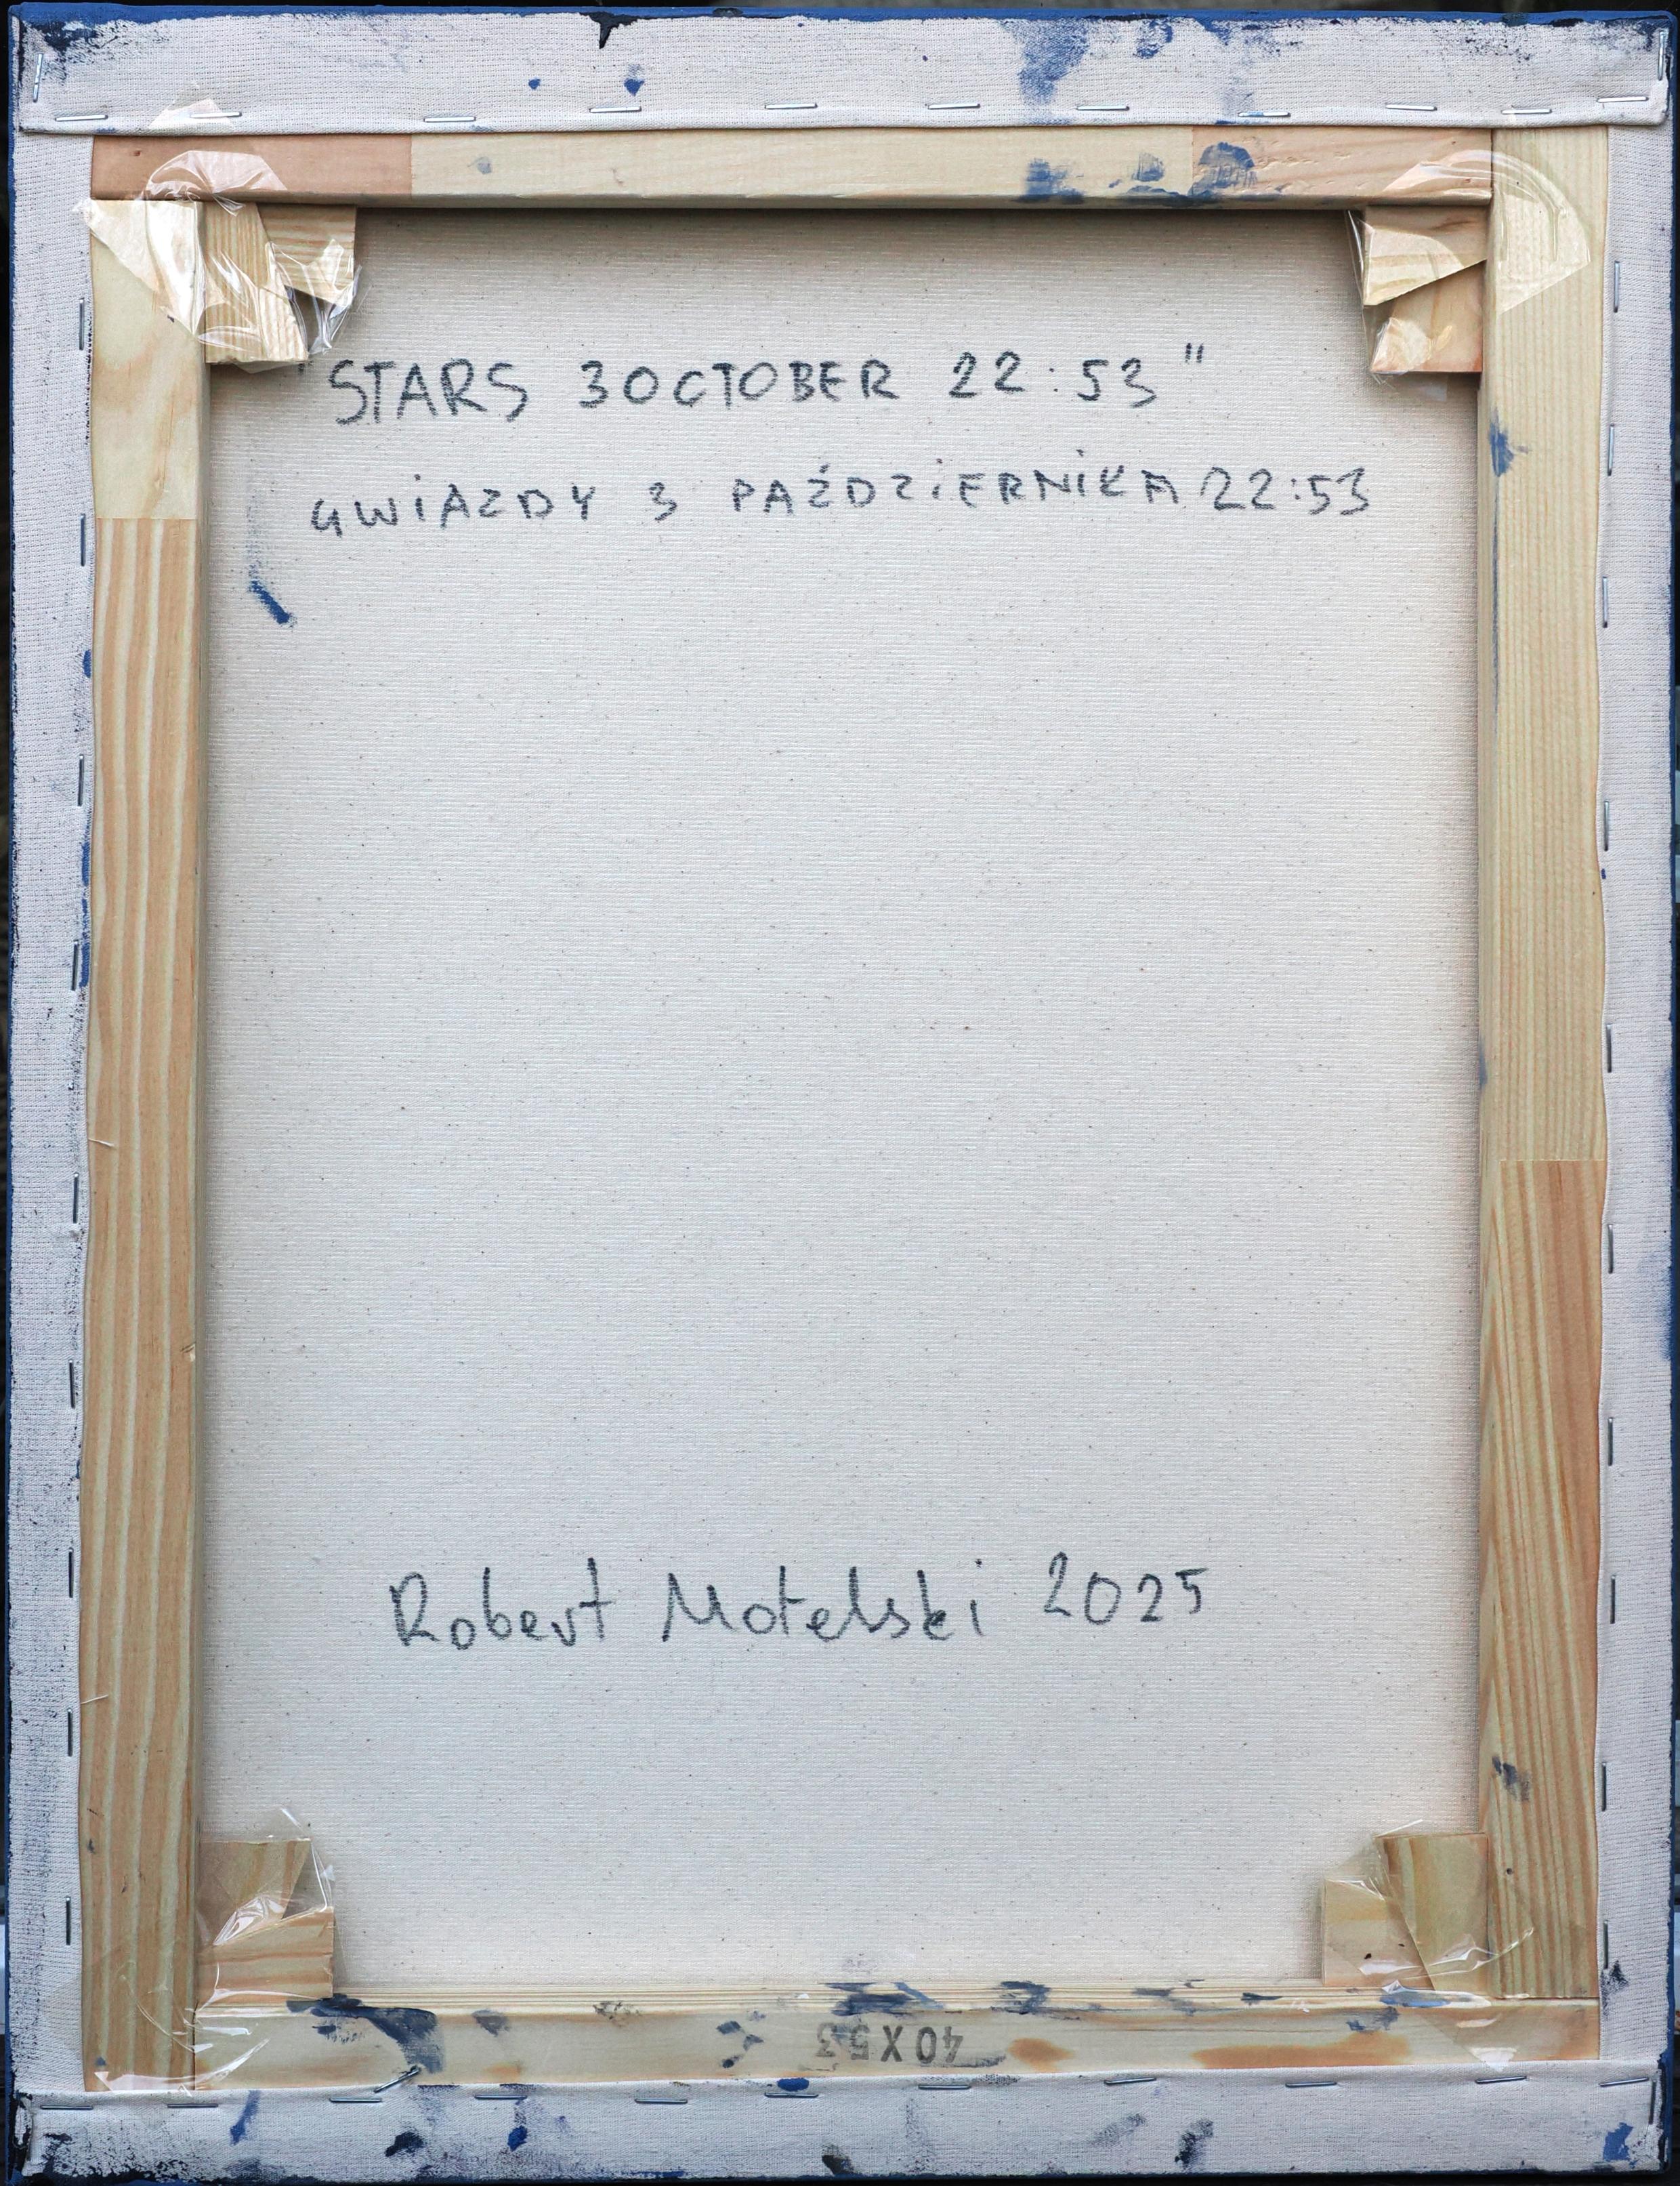 "STARS 3 OCTOBER 22:53"
GWiAZDY 3 PAŹDZiERNiKA 22:53
Robert Motelski 2025
40X53